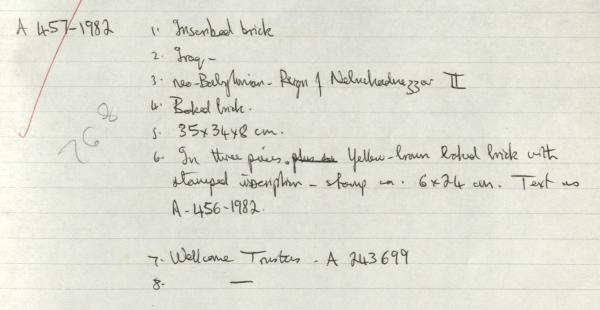 A 457-1982 1. Inscribed brick
2. Iraq -
3. neo-Babylonian - Reign of Nebuchadnezzar II
4. Baked brick.
5. 35x34x8 cm.
6. In three pieces. Yellow-brown baked brick with
stamped inscription - stamp ca. 6x24 cm. Text as
A-456-1982.
7. Wellcome Trustees - A 243699
8. —